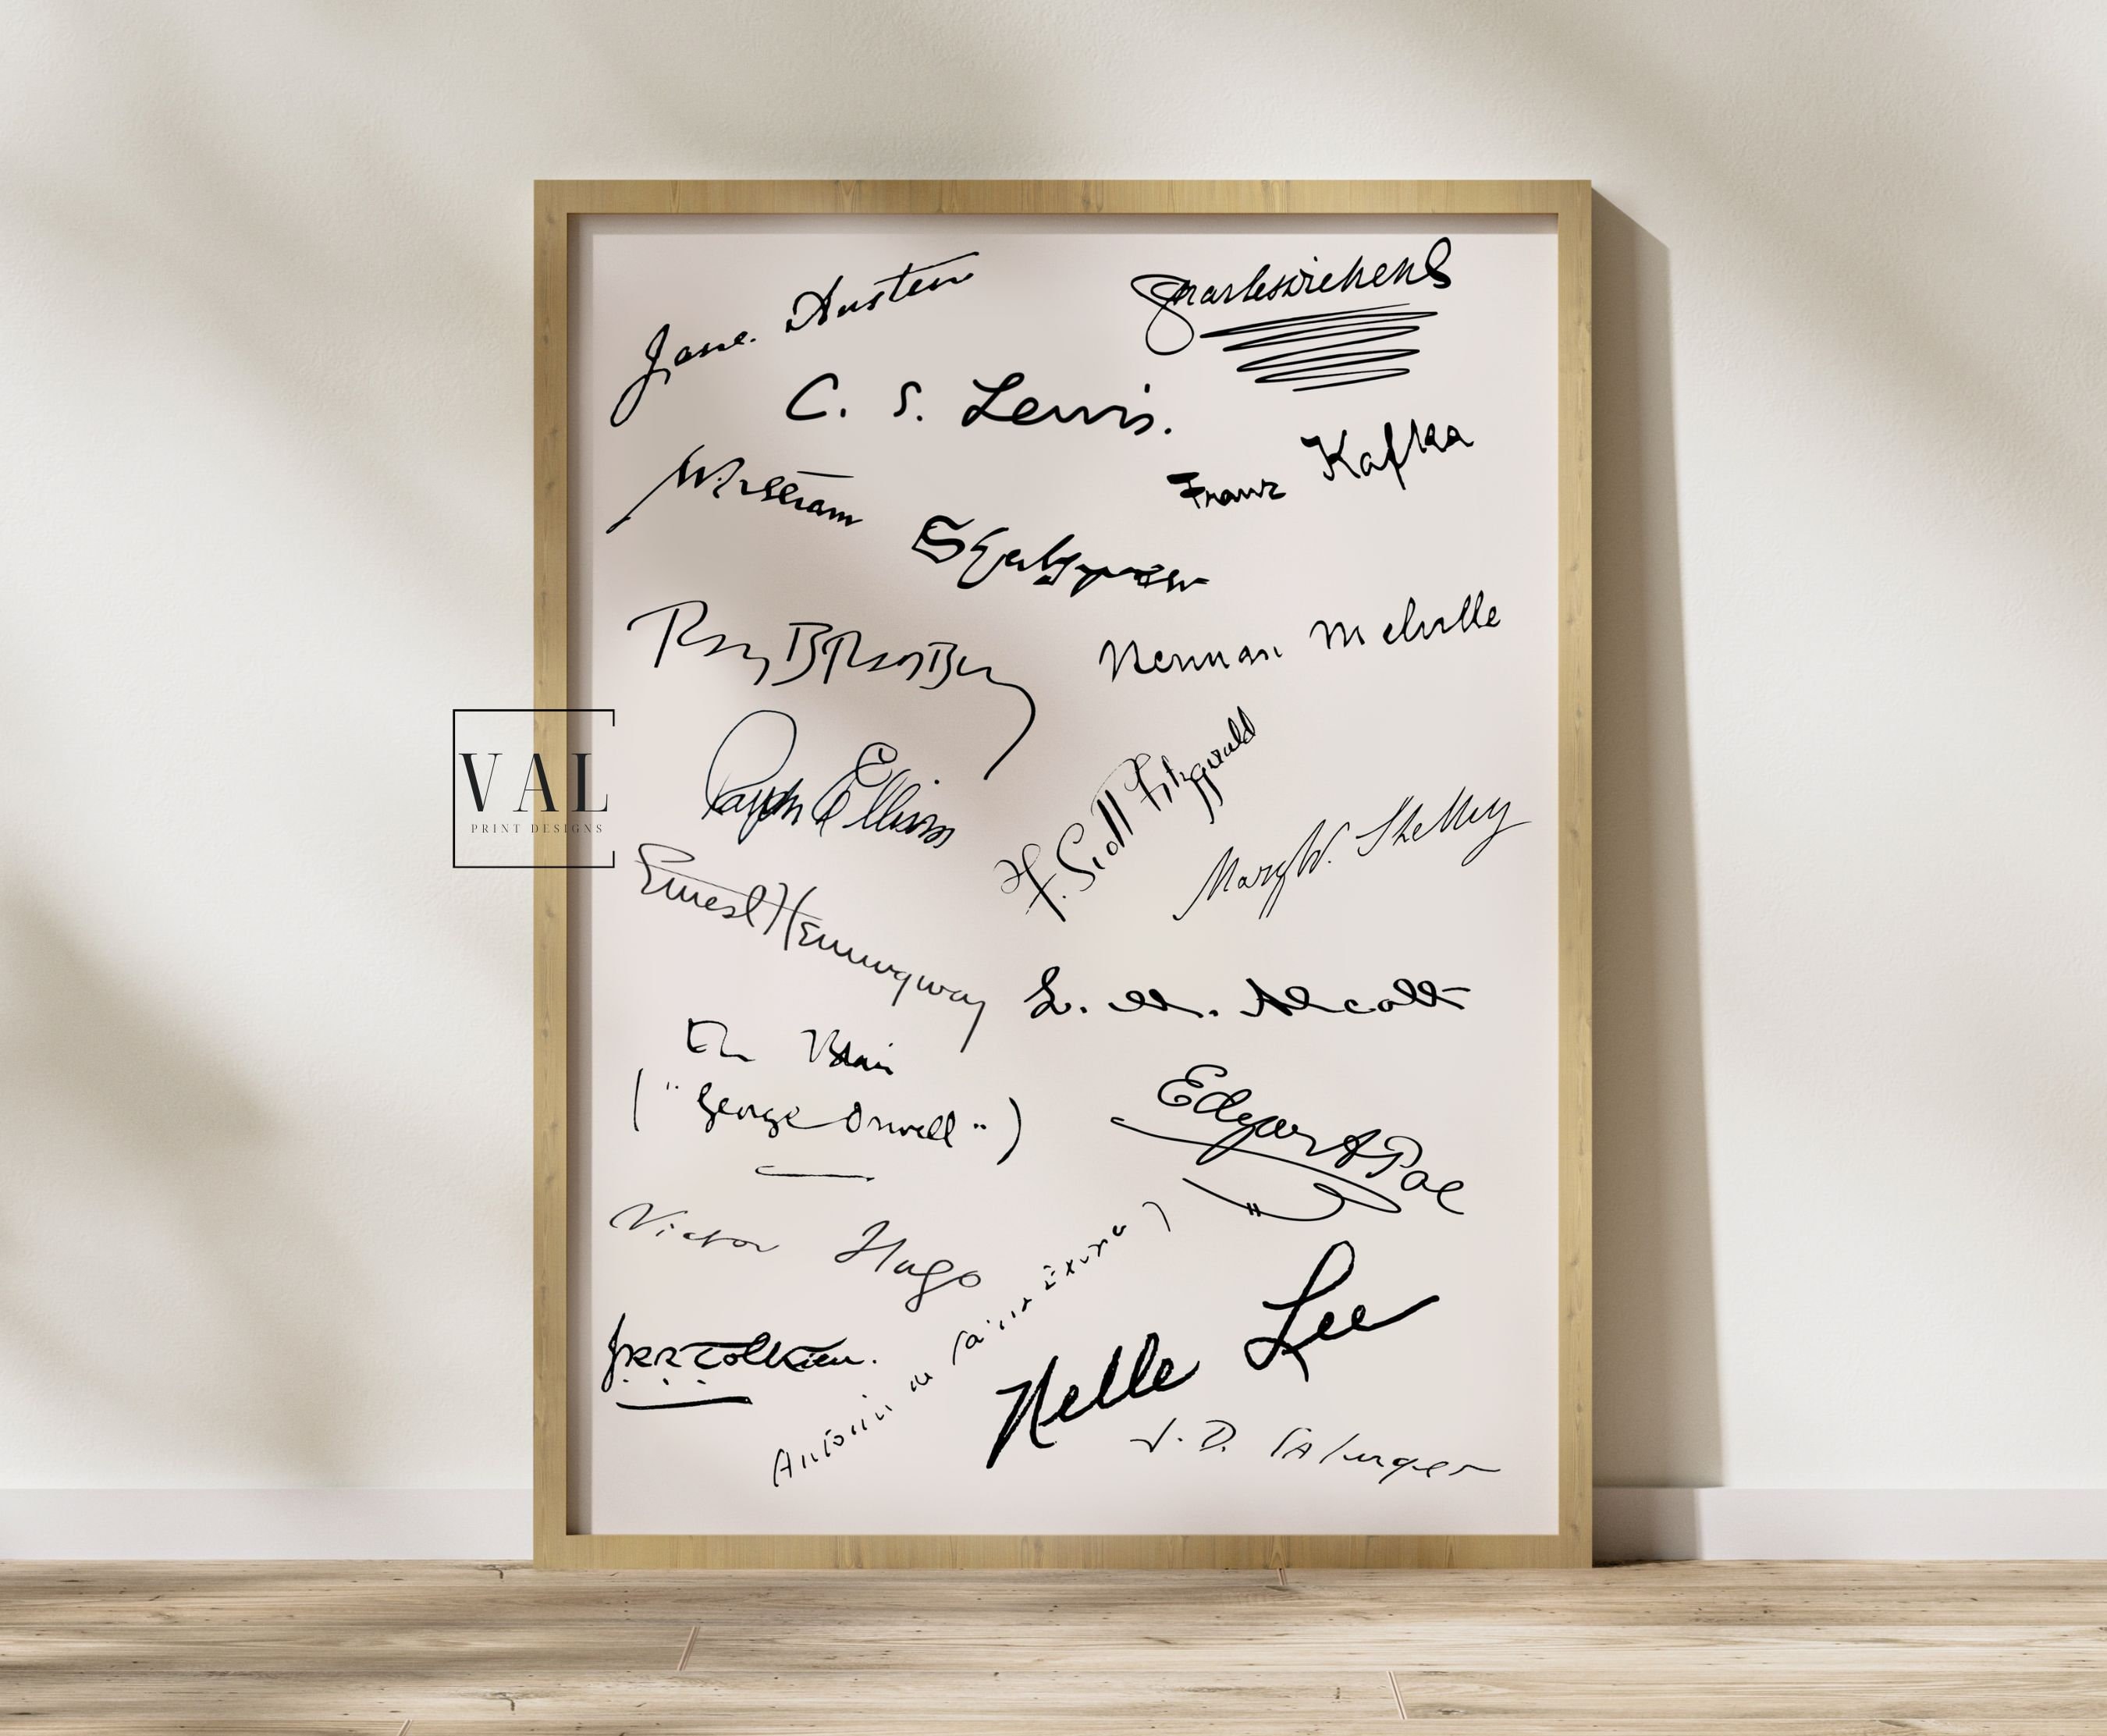 Jane Austen
Charles Dickens
C. S. Lewis.
Franz Kafka
William
Shakspeare
Ray Bradbury
Herman Melville
VAL
PRINT DESIGNS
Ralph Ellison
F. Scott Fitzgerald
Mary W. Shelley
Ernest Hemingway
L. M. Alcott
Eric Blair
("George Orwell")
Edgar A Poe
Victor Hugo
Antoine de Saint Exupéry
JRR Tolkien.
Nelle Lee
J. D. Salinger